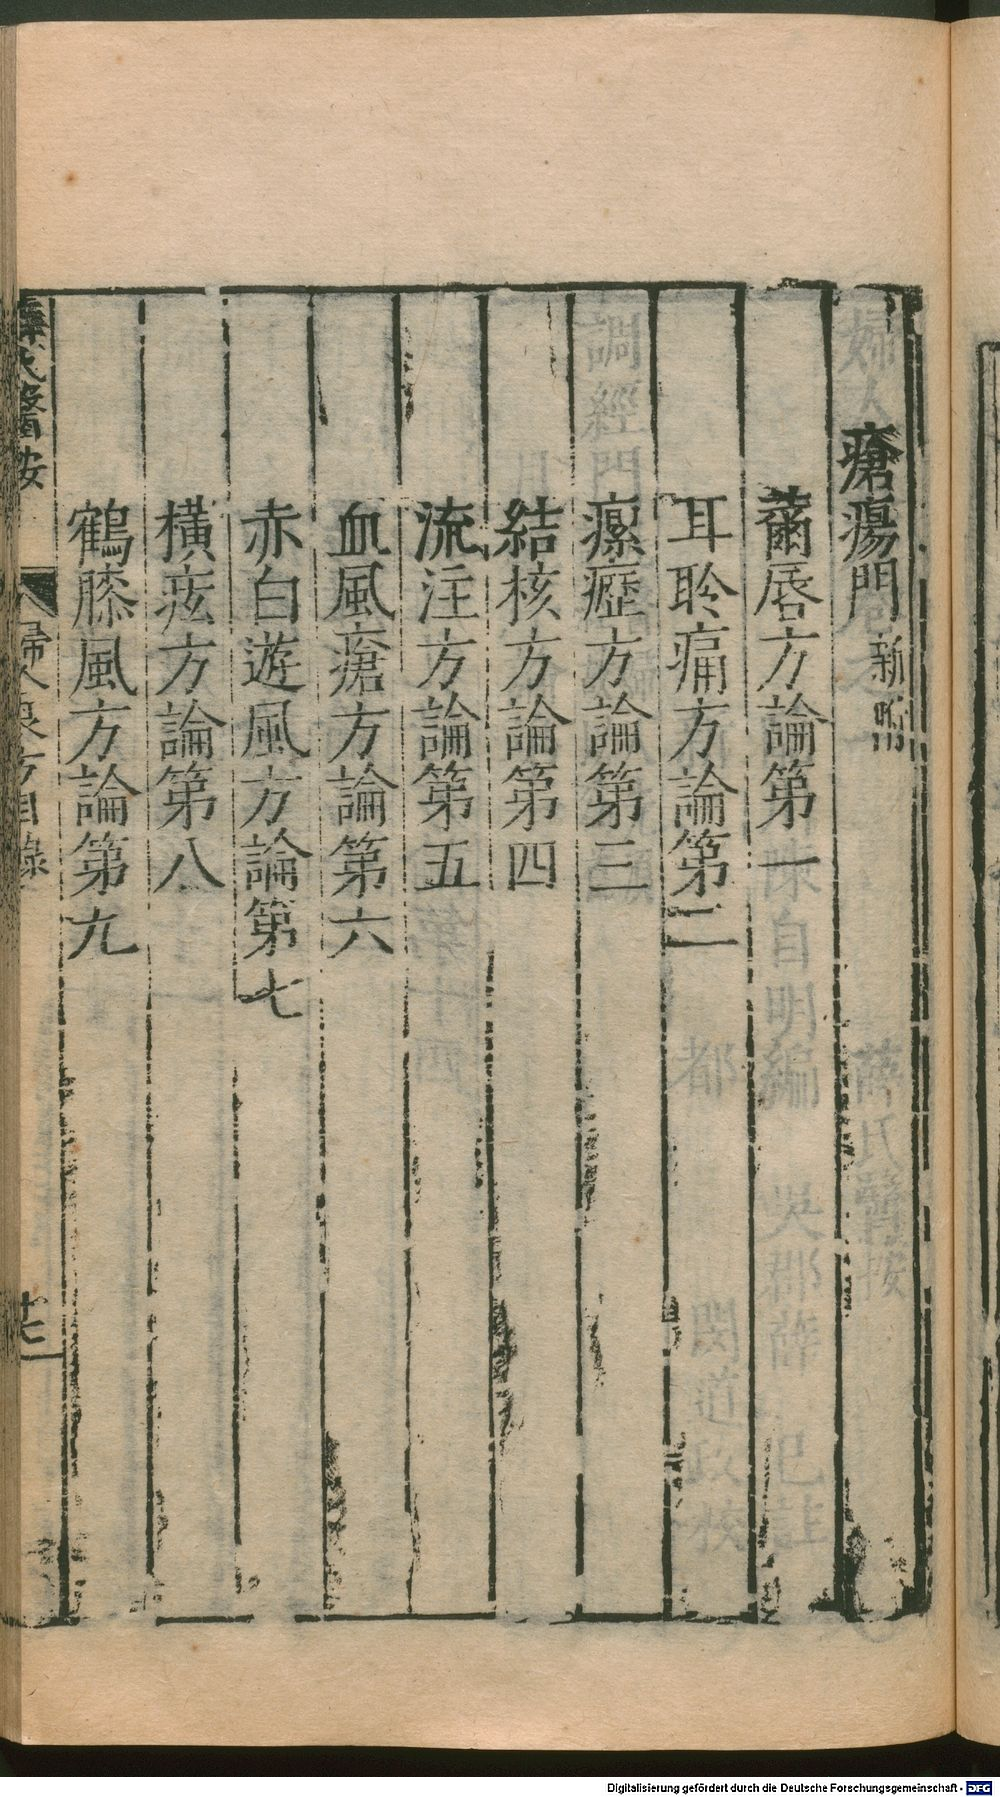 瘡瘍門新增
繭唇方論第一
耳聆痛方論第二
瘰癧方論第三
結核方論第四
流注方論第五
血風瘡方論第六
赤白遊風方論第七
橫痃方論第八
鶴膝風方論第九
薛氏醫按
婦人良方目錄
十七
Digitalisierung gefördert durch die Deutsche Forschungsgemeinschaft - DFG